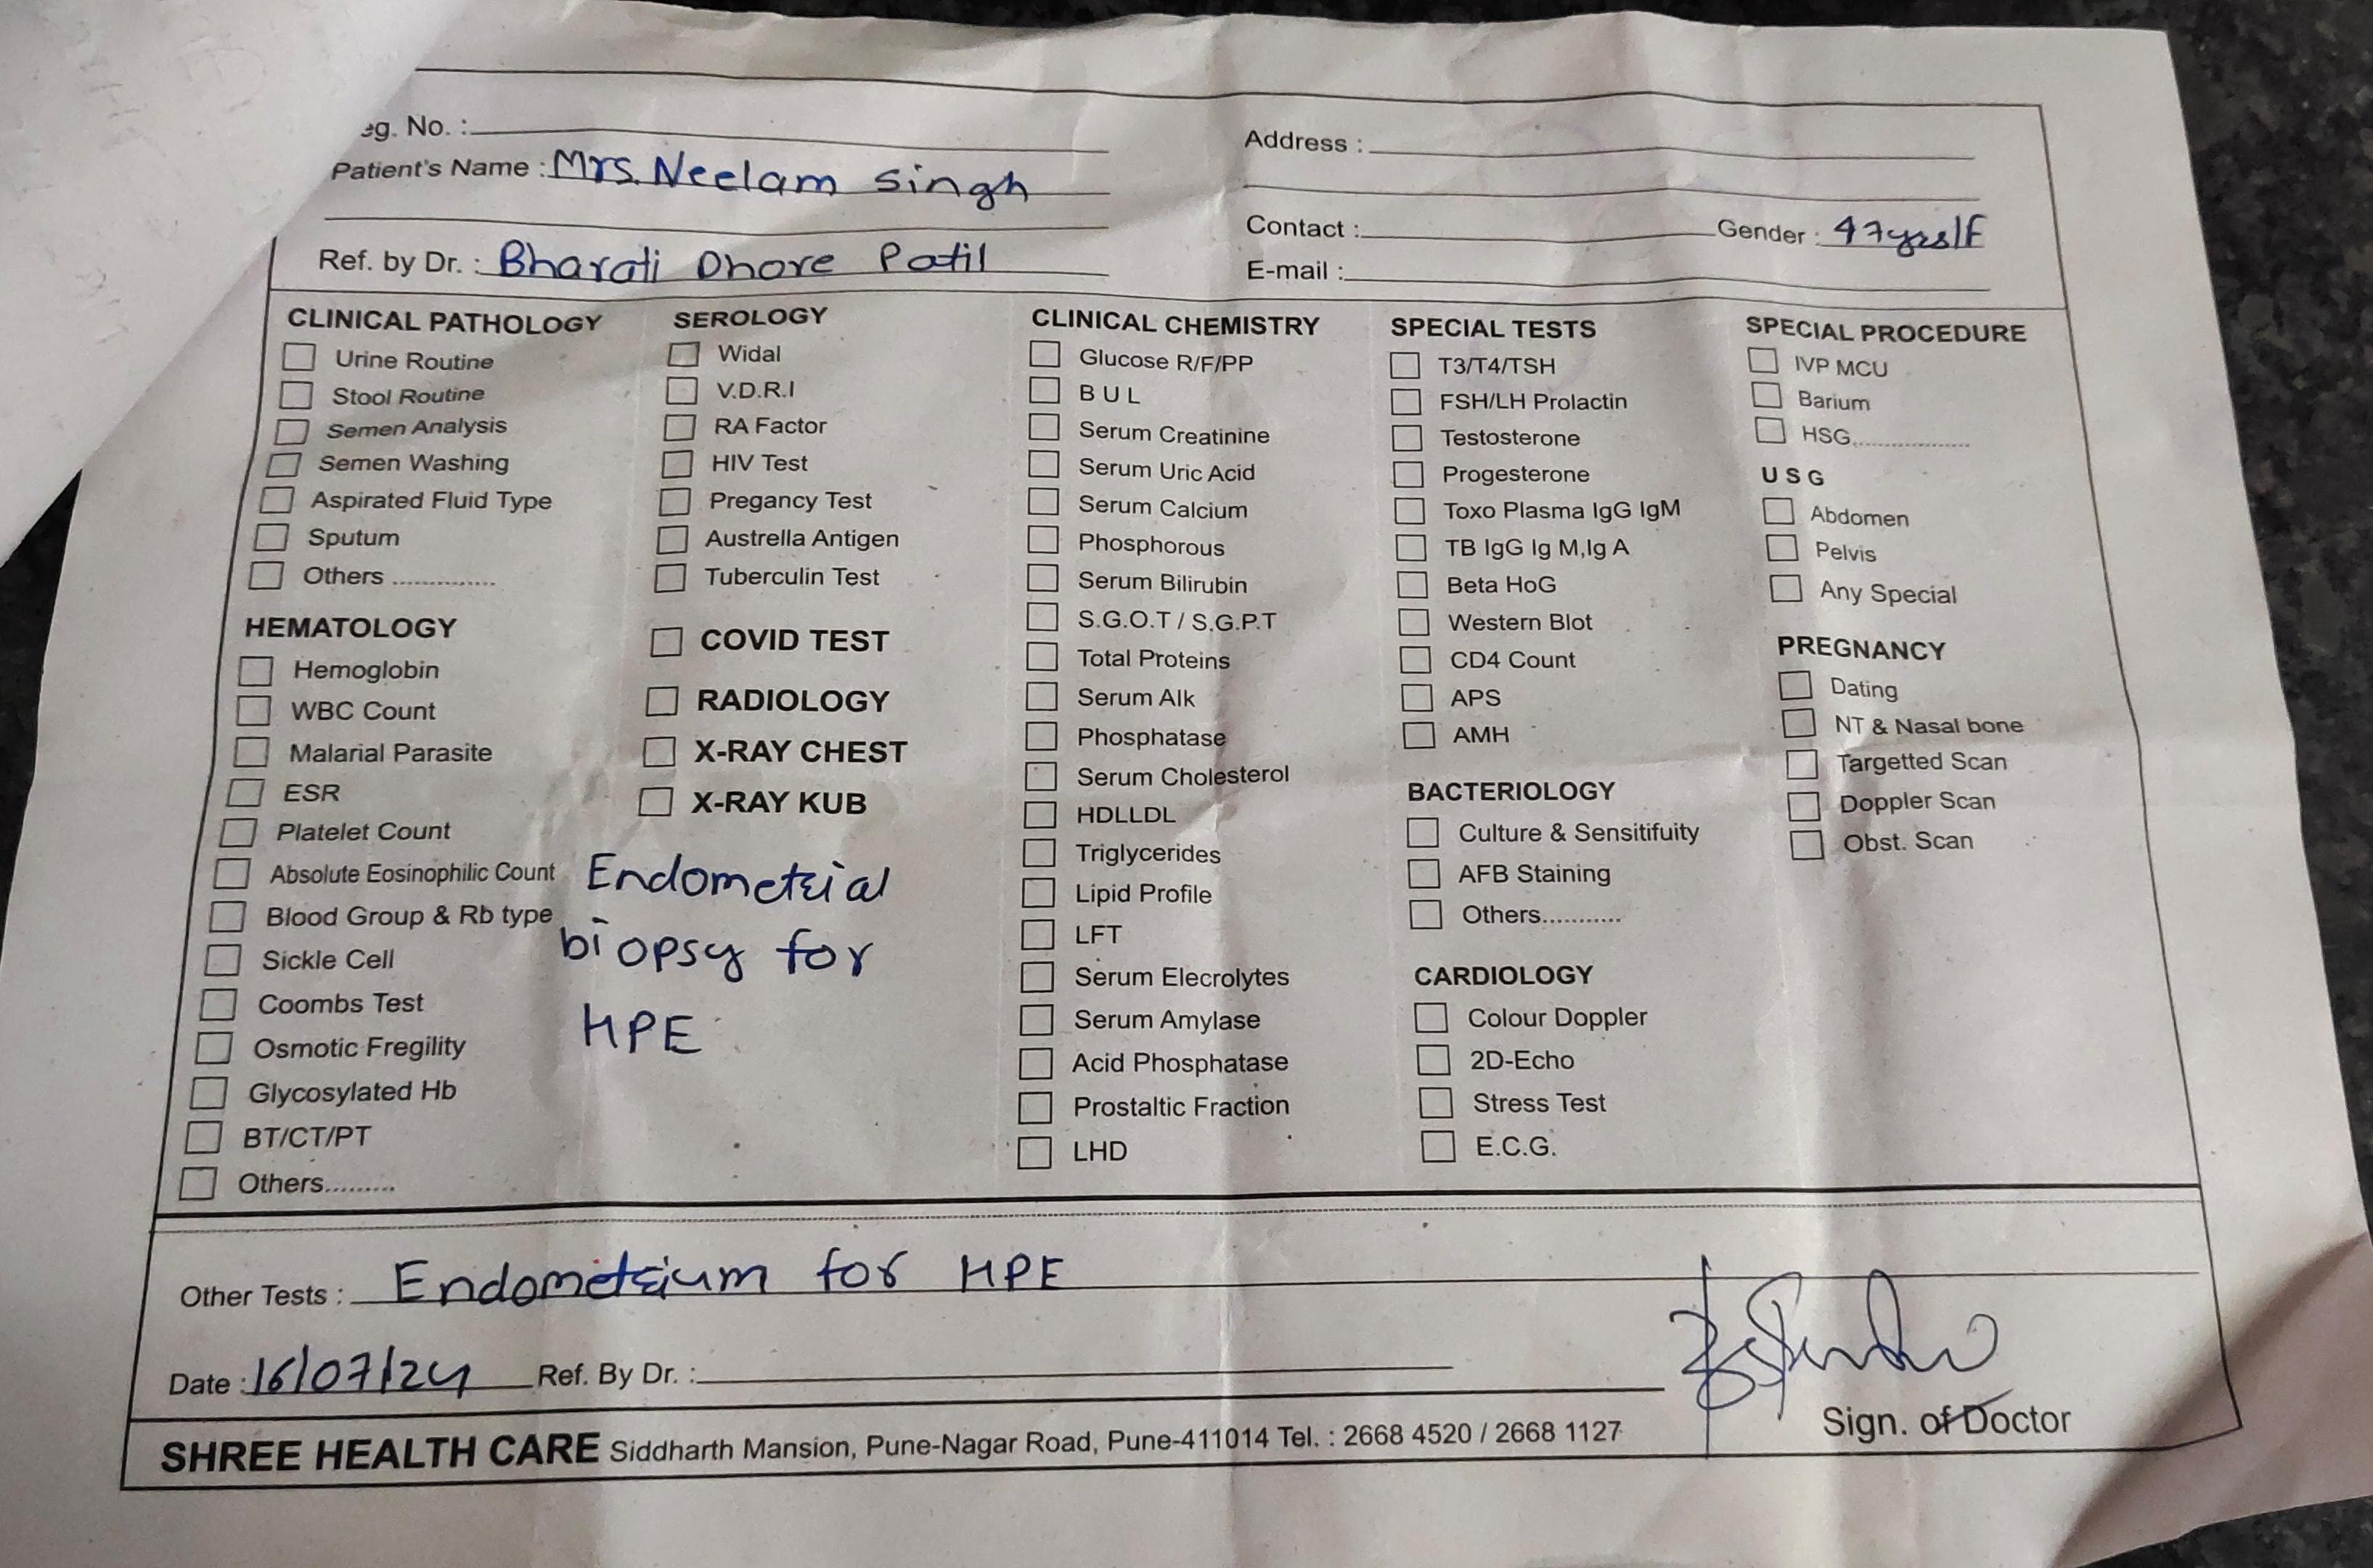 eg. No. :
Patient's Name : Mrs. Neelam Singh
Ref. by Dr. : Bharati Dhore Patil
Address :
Contact :
Gender : 47yrs/F
E-mail :
CLINICAL PATHOLOGY
Urine Routine
Stool Routine
Semen Analysis
Semen Washing
Aspirated Fluid Type
Sputum
Others ..............
HEMATOLOGY
Hemoglobin
WBC Count
Malarial Parasite
ESR
Platelet Count
Absolute Eosinophilic Count
Blood Group & Rb type
Sickle Cell
Coombs Test
Osmotic Fregility
Glycosylated Hb
BT/CT/PT
Others.........
SEROLOGY
Widal
V.D.R.I
RA Factor
HIV Test
Pregancy Test
Austrella Antigen
Tuberculin Test
COVID TEST
RADIOLOGY
X-RAY CHEST
X-RAY KUB
Endometrial
biopsy for
HPE
CLINICAL CHEMISTRY
Glucose R/F/PP
B U L
Serum Creatinine
Serum Uric Acid
Serum Calcium
Phosphorous
Serum Bilirubin
S.G.O.T / S.G.P.T
Total Proteins
Serum Alk
Phosphatase
Serum Cholesterol
HDLLDL
Triglycerides
Lipid Profile
LFT
Serum Elecrolytes
Serum Amylase
Acid Phosphatase
Prostaltic Fraction
LHD
SPECIAL TESTS
T3/T4/TSH
FSH/LH Prolactin
Testosterone
Progesterone
Toxo Plasma IgG IgM
TB IgG Ig M,Ig A
Beta HoG
Western Blot
CD4 Count
APS
AMH
BACTERIOLOGY
Culture & Sensitifuity
AFB Staining
Others...........
CARDIOLOGY
Colour Doppler
2D-Echo
Stress Test
E.C.G.
SPECIAL PROCEDURE
IVP MCU
Barium
HSG....................
U S G
Abdomen
Pelvis
Any Special
PREGNANCY
Dating
NT & Nasal bone
Targetted Scan
Doppler Scan
Obst. Scan
Other Tests : Endometrium for HPE
Date : 16/07/24 Ref. By Dr. :
Sign. of Doctor
SHREE HEALTH CARE Siddharth Mansion, Pune-Nagar Road, Pune-411014 Tel. : 2668 4520 / 2668 1127